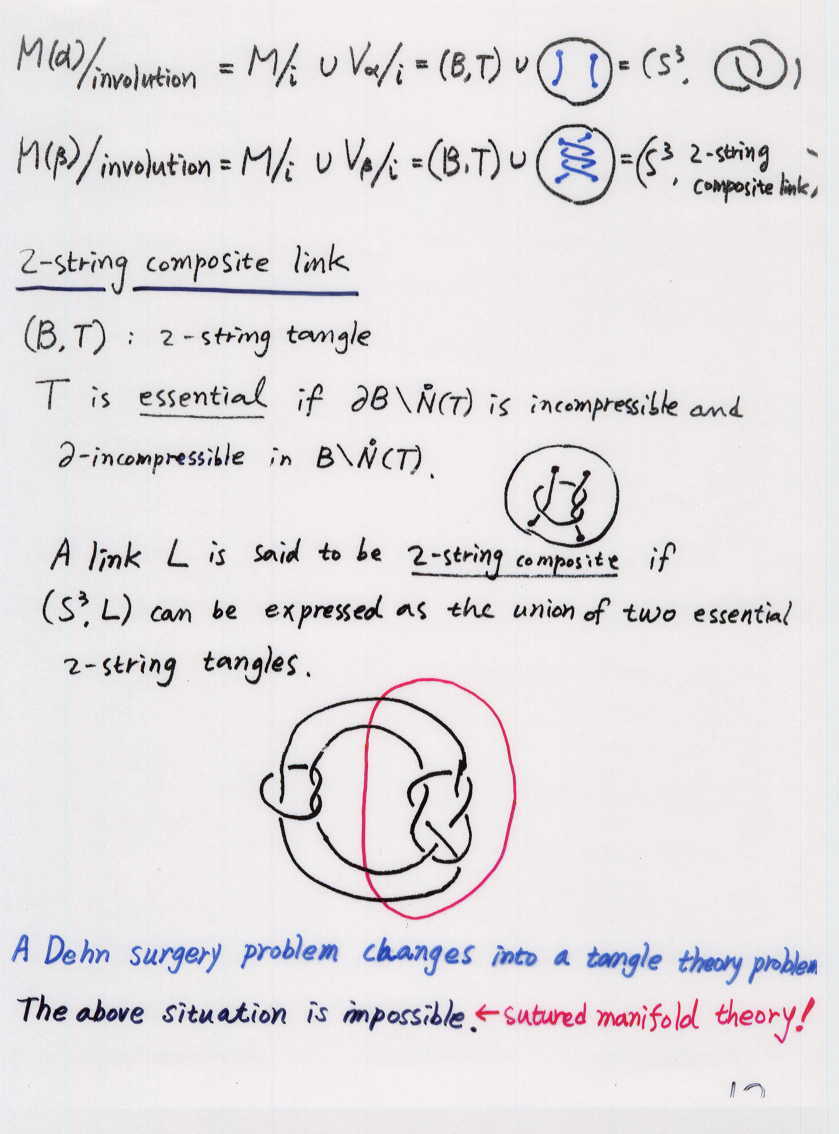 M(α)/involution = M/i ∪ Vα/i = (B,T) ∪ = (S³, )
M(β)/involution = M/i ∪ Vβ/i = (B,T) ∪ = (S³, 2-string composite link,
2-string composite link
(B,T) : 2-string tangle
T is essential if ∂B\N̊(T) is incompressible and
∂-incompressible in B\N̊(T).
A link L is said to be 2-string composite if
(S³, L) can be expressed as the union of two essential
2-string tangles.
A Dehn surgery problem changes into a tangle theory problem
The above situation is impossible. ← sutured manifold theory!